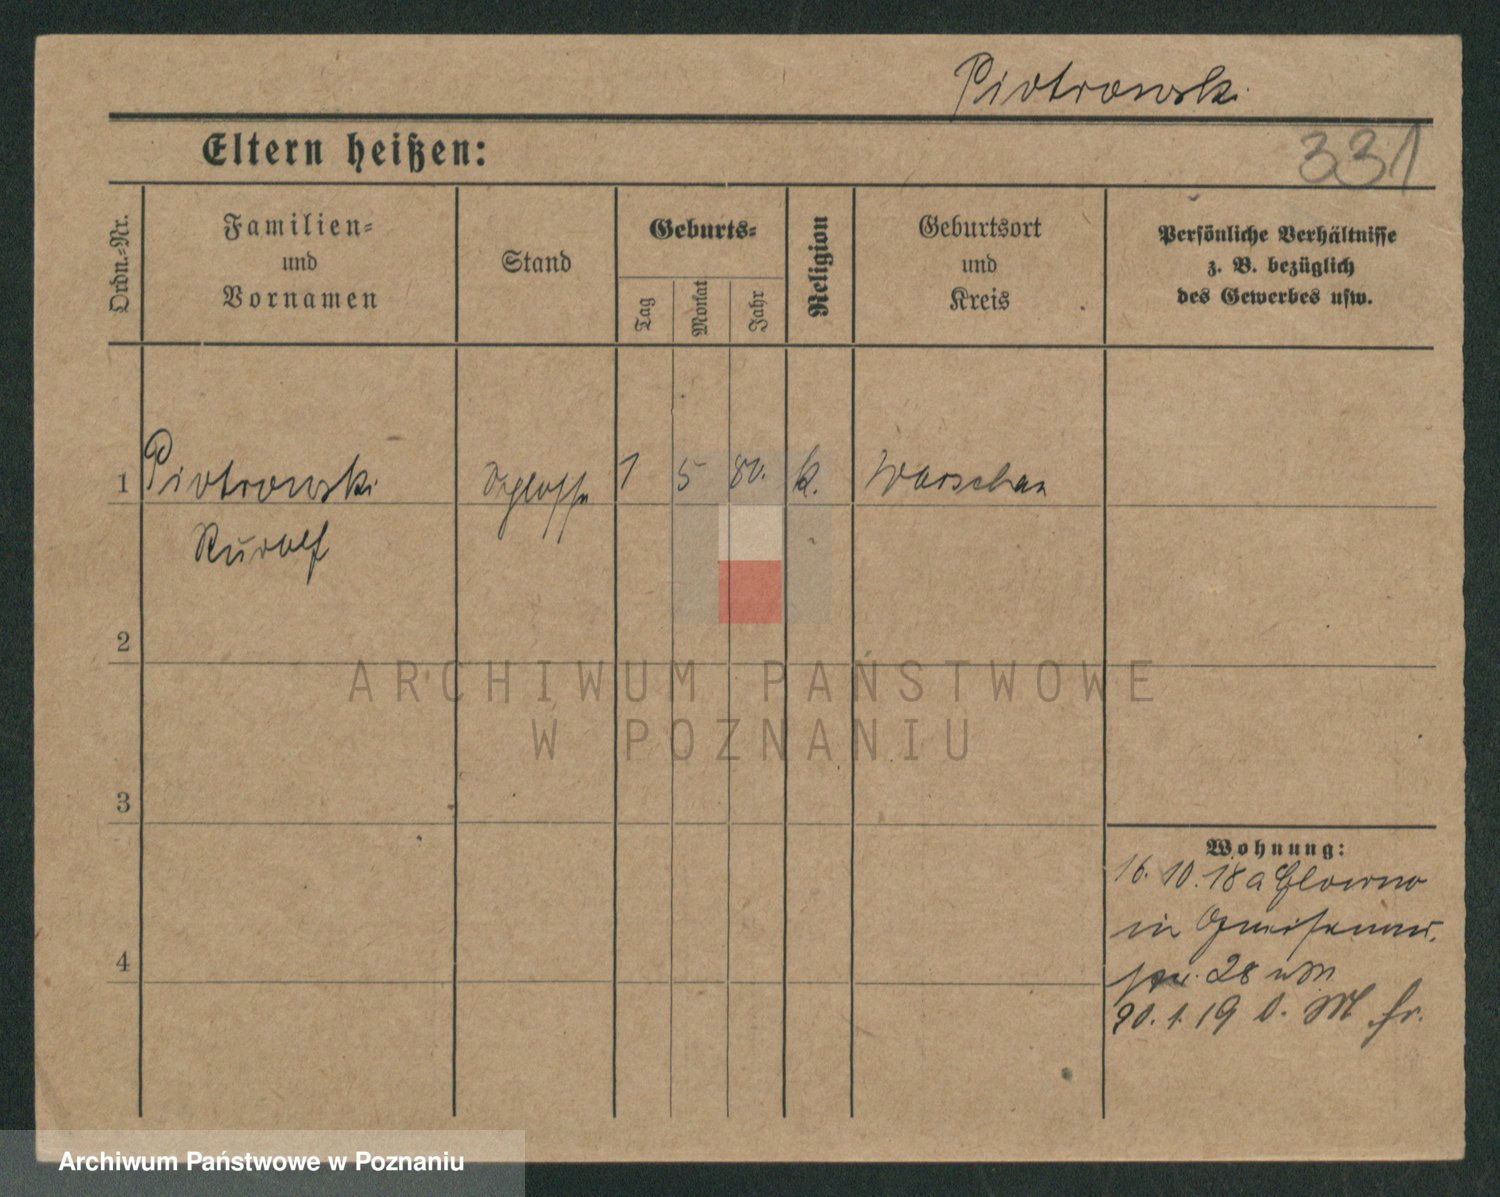 Piotrowski
331
Eltern heißen:
Ordn.-Nr.
Familien-
und
Vornamen
Stand
Geburts-
Tag
Monat
Jahr
Religion
Geburtsort
und
Kreis
Persönliche Verhältnisse
z. B. bezüglich
des Gewerbes usw.
1 Piotrowski 1 5 80. k. Warschau
Rudolf
2
ARCHIWUM PAŃSTWOWE
W POZNANIU
3
Wohnung:
16. 10. 18 a Glowno
in
28
4
20. 1. 19
Archiwum Państwowe w Poznaniu